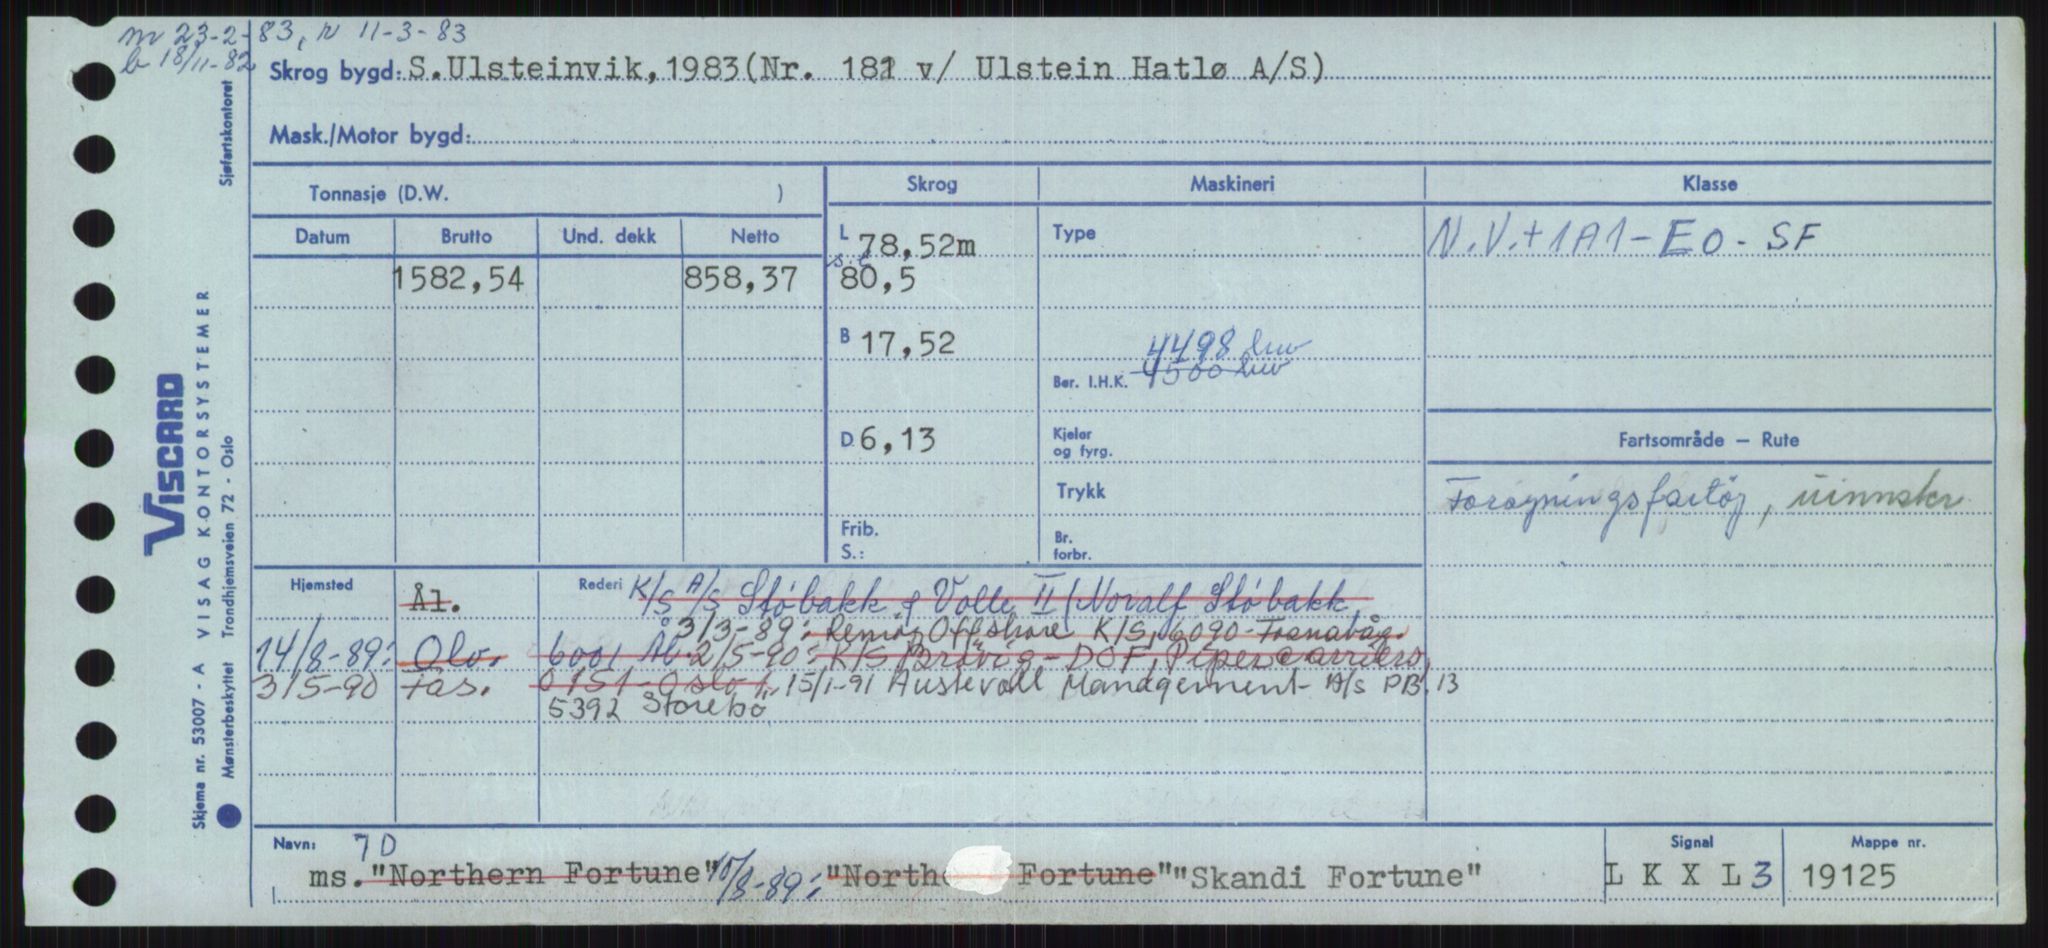 m 23-2-83, r 11-3-83
b 18/11-82
Skrog bygd: S.Ulsteinvik, 1983(Nr. 181 v/ Ulstein Hatlø A/S)
Mask./Motor bygd:
Tonnasje (D.W. )
Skrog
Maskineri
Klasse
Datum
Brutto
Und. dekk
Netto
L 78,52m
Type
N.V.+1A1-EO-SF
1582,54
858,37
80,5
B 17,52
4498 kw
Ber. I.H.K. 4500 kw
D 6,13
Kjeler og fyrg.
Fartsområde — Rute
Trykk
Forsyningsfartøy,
Frib.
S.:
Br. forbr.
Hjemsted
Ål.
Rederi K/S A/S Støbakk & Volle II (Noralf Støbakk
3/3-89: Remøy Offshore K/S, 6090-Fosnavåg.
14/8-89: Olv. 6001 Ål. 2/5-90: K/S Brøvig-DOF, Pipercarriers,
3/5-90 Fas. 0151-Oslo 1, 15/1-91 Austevoll Management A/S PB. 13
5392 Storebø
Navn: 7D
ms. "Northern Fortune" 10/8-89: "North Fortune" "Skandi Fortune"
Signal
L K X L 3
Mappe nr.
19125
VISCARD
VISAG KONTORSYSTEMER
Skjema nr. 53007 - A
Mønsterbeskyttet Trondhjemsveien 72 - Oslo
Sjøfartskontoret